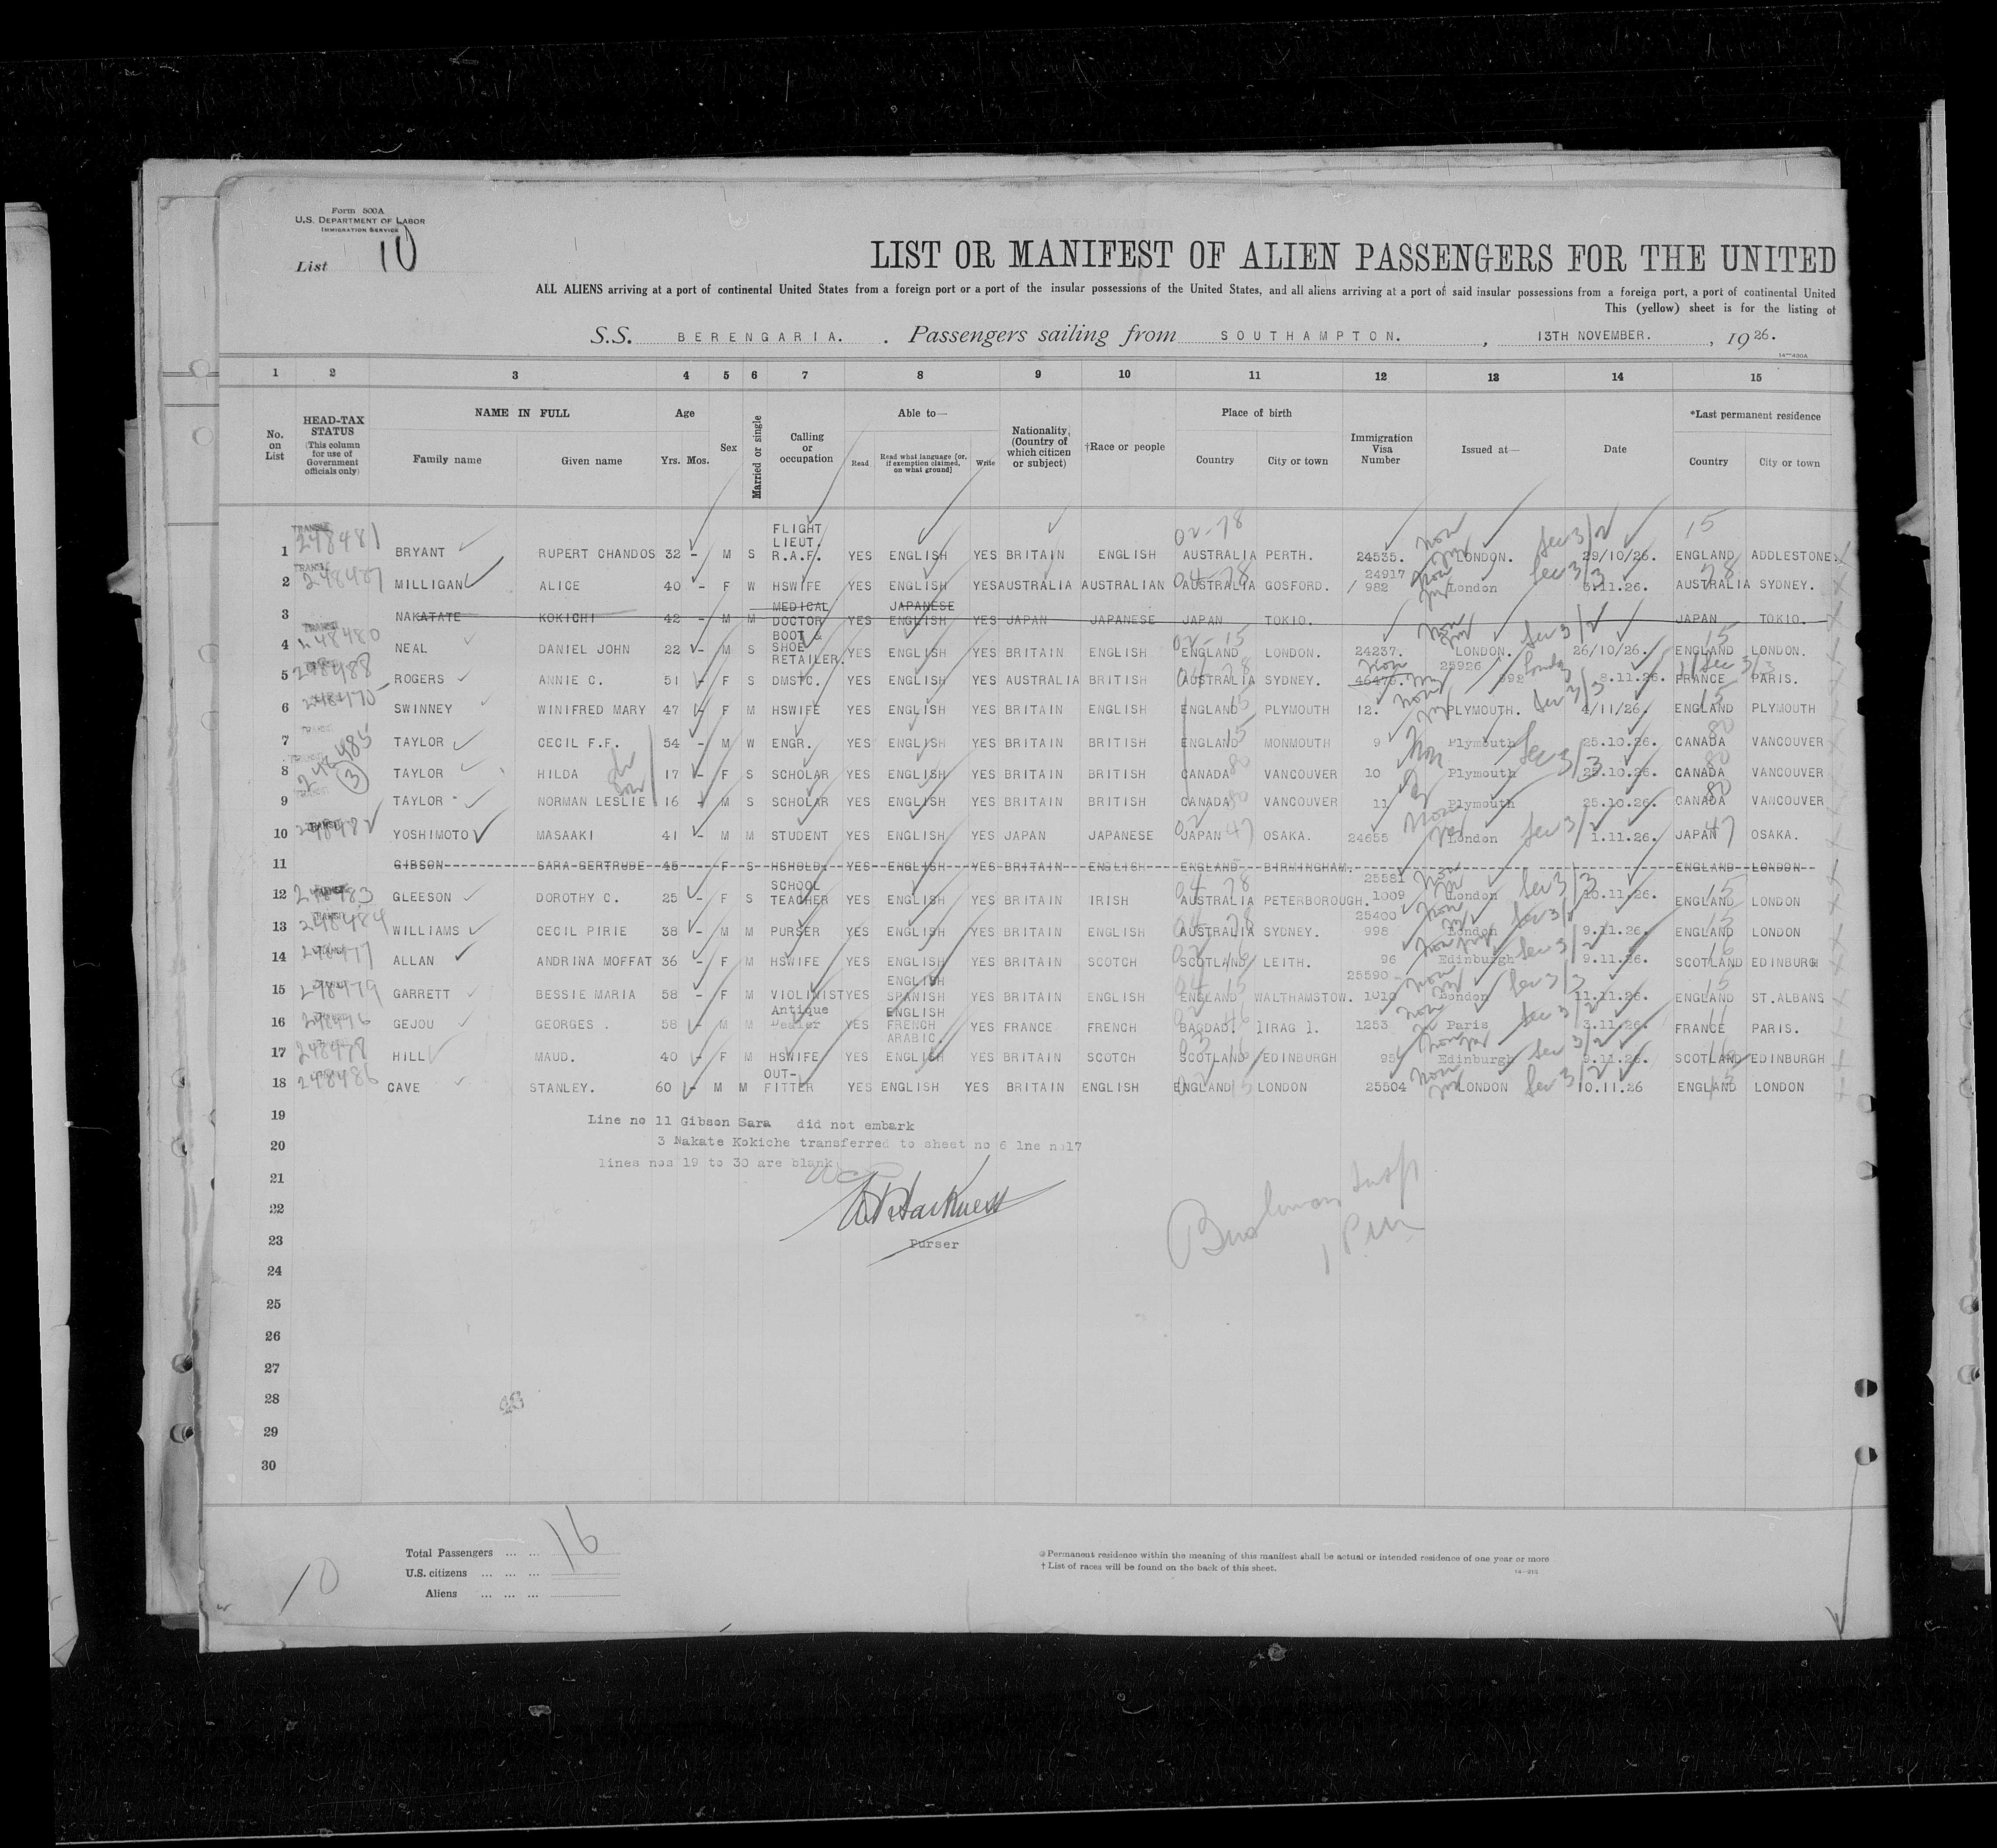 Form 500A
U.S. DEPARTMENT OF LABOR
IMMIGRATION SERVICE
List 10
LIST OR MANIFEST OF ALIEN PASSENGERS FOR THE UNITED
ALL ALIENS arriving at a port of continental United States from a foreign port or a port of the insular possessions of the United States, and all aliens arriving at a port of said insular possessions from a foreign port, a port of continental United
This (yellow) sheet is for the listing of
S.S. BERENGARIA. . Passengers sailing from SOUTHAMPTON. , 13TH NOVEMBER. , 1926.
14—430A
1 2 3 4 5 6 7 8 9 10 11 12 13 14 15
No. on List
HEAD-TAX STATUS (This column for use of Government officials only)
NAME IN FULL
Family name Given name
Age
Yrs. Mos.
Sex
Married or single
Calling or occupation
Able to—
Read Read what language [or, if exemption claimed, on what ground] Write
Nationality. (Country of which citizen or subject)
†Race or people
Place of birth
Country City or town
Immigration Visa Number
Issued at—
Date
*Last permanent residence
Country City or town
1 TRANSIT 248481 BRYANT RUPERT CHANDOS 32 - M S FLIGHT LIEUT. R.A.F. YES ENGLISH YES BRITAIN ENGLISH 02-78 AUSTRALIA PERTH. 24535. Non LONDON. Sec 3/2 29/10/26. 15 ENGLAND ADDLESTONE.
2 TRANSIT 248487 MILLIGAN ALICE 40 - F W HSWIFE YES ENGLISH YES AUSTRALIA AUSTRALIAN 04-78 AUSTRALIA GOSFORD. 24917 / 982 Non London Sec 3/3 3.11.26. 78 AUSTRALIA SYDNEY.
3 NAKATATE KOKICHI 42 - M M MEDICAL DOCTOR YES JAPANESE ENGLISH YES JAPAN JAPANESE JAPAN TOKIO. JAPAN TOKIO.
4 TRANSIT 248480 NEAL DANIEL JOHN 22 - M S BOOT & SHOE RETAILER. YES ENGLISH YES BRITAIN ENGLISH 02-15 ENGLAND LONDON. 24237. Non LONDON. Sec 3/2 26/10/26. 15 ENGLAND LONDON.
5 248488 ROGERS ANNIE C. 51 - F S DMSTC. YES ENGLISH YES AUSTRALIA BRITISH 04 78 AUSTRALIA SYDNEY. 46476. Non 25926 992 London 8.11.26. 11 Sec 3/3 FRANCE PARIS.
6 248475 SWINNEY WINIFRED MARY 47 - F M HSWIFE YES ENGLISH YES BRITAIN ENGLISH ENGLAND 15 PLYMOUTH 12. Non PLYMOUTH. Sec 3/3 4/11/26. 15 ENGLAND PLYMOUTH
7 TRANSIT TAYLOR CECIL F.F. 54 - M W ENGR. YES ENGLISH YES BRITAIN BRITISH ENGLAND 15 MONMOUTH 9 Plymouth 25.10.26. 80 CANADA VANCOUVER
8 TRANSIT 248485 (3) TAYLOR HILDA 17 - F S SCHOLAR YES ENGLISH YES BRITAIN BRITISH CANADA 80 VANCOUVER 10 Non Plymouth Sec 3/3 25.10.26. 80 CANADA VANCOUVER
9 TRANSIT TAYLOR NORMAN LESLIE 16 - M S SCHOLAR YES ENGLISH YES BRITAIN BRITISH CANADA 80 VANCOUVER 11 Plymouth 25.10.26. 80 CANADA VANCOUVER
10 TRANSIT 248482 YOSHIMOTO MASAAKI 41 - M M STUDENT YES ENGLISH YES JAPAN JAPANESE 02 JAPAN 47 OSAKA. 24655 Non London Sec 3/2 1.11.26. JAPAN 47 OSAKA.
11 GIBSON SARA GERTRUDE 45 - F S HSHOLD. YES ENGLISH YES BRITAIN ENGLISH ENGLAND BIRMINGHAM. ENGLAND LONDON
12 248483 GLEESON DOROTHY C. 25 - F S SCHOOL TEACHER YES ENGLISH YES BRITAIN IRISH 04 78 AUSTRALIA PETERBOROUGH. 25581 1009 Non London Sec 3/3 10.11.26. 15 ENGLAND LONDON
13 TRANSIT 248484 WILLIAMS CECIL PIRIE 38 - M M PURSER YES ENGLISH YES BRITAIN ENGLISH 04 78 AUSTRALIA SYDNEY. 25400 998 Non London Sec 3/2 9.11.26. 15 ENGLAND LONDON
14 248477 ALLAN ANDRINA MOFFAT 36 - F M HSWIFE YES ENGLISH YES BRITAIN SCOTCH 02 16 SCOTLAND LEITH. 96 Non Edinburgh Sec 3/2 9.11.26. 16 SCOTLAND EDINBURGH
15 248479 GARRETT BESSIE MARIA 58 - F M VIOLINIST YES ENGLISH SPANISH YES BRITAIN ENGLISH 04 15 ENGLAND WALTHAMSTOW. 25590 1010 Non London Sec 3/3 11.11.26. 15 ENGLAND ST.ALBANS
16 248476 GEJOU GEORGES . 58 - M M Antique Dealer YES ENGLISH FRENCH ARABIC. YES FRANCE FRENCH 02 46 BAGDAD. lIRAG l. 1253 Non Paris Sec 3/2 3.11.26. 11 FRANCE PARIS.
17 248478 HILL MAUD. 40 - F M HSWIFE YES ENGLISH YES BRITAIN SCOTCH 03 16 SCOTLAND EDINBURGH 95 Non Edinburgh Sec 3/2 9.11.26. 16 SCOTLAND EDINBURGH
18 248486 CAVE STANLEY. 60 - M M OUT-FITTER YES ENGLISH YES BRITAIN ENGLISH ENGLAND 15 LONDON 25504 Non LONDON Sec 3/2 10.11.26 15 ENGLAND LONDON
19 Line no 11 Gibson Sara did not embark
20 3 Nakate Kokiche transferred to sheet no 6 lne no17
lines nos 19 to 30 are blank
21
22
23 Purser
24
25
26
27
28
29
30
Insp
1 P.M.
Total Passengers ... ... 16
U.S. citizens ... ... ...
Aliens ... ... ...
10
*Permanent residence within the meaning of this manifest shall be actual or intended residence of one year or more
† List of races will be found on the back of this sheet.
14—215